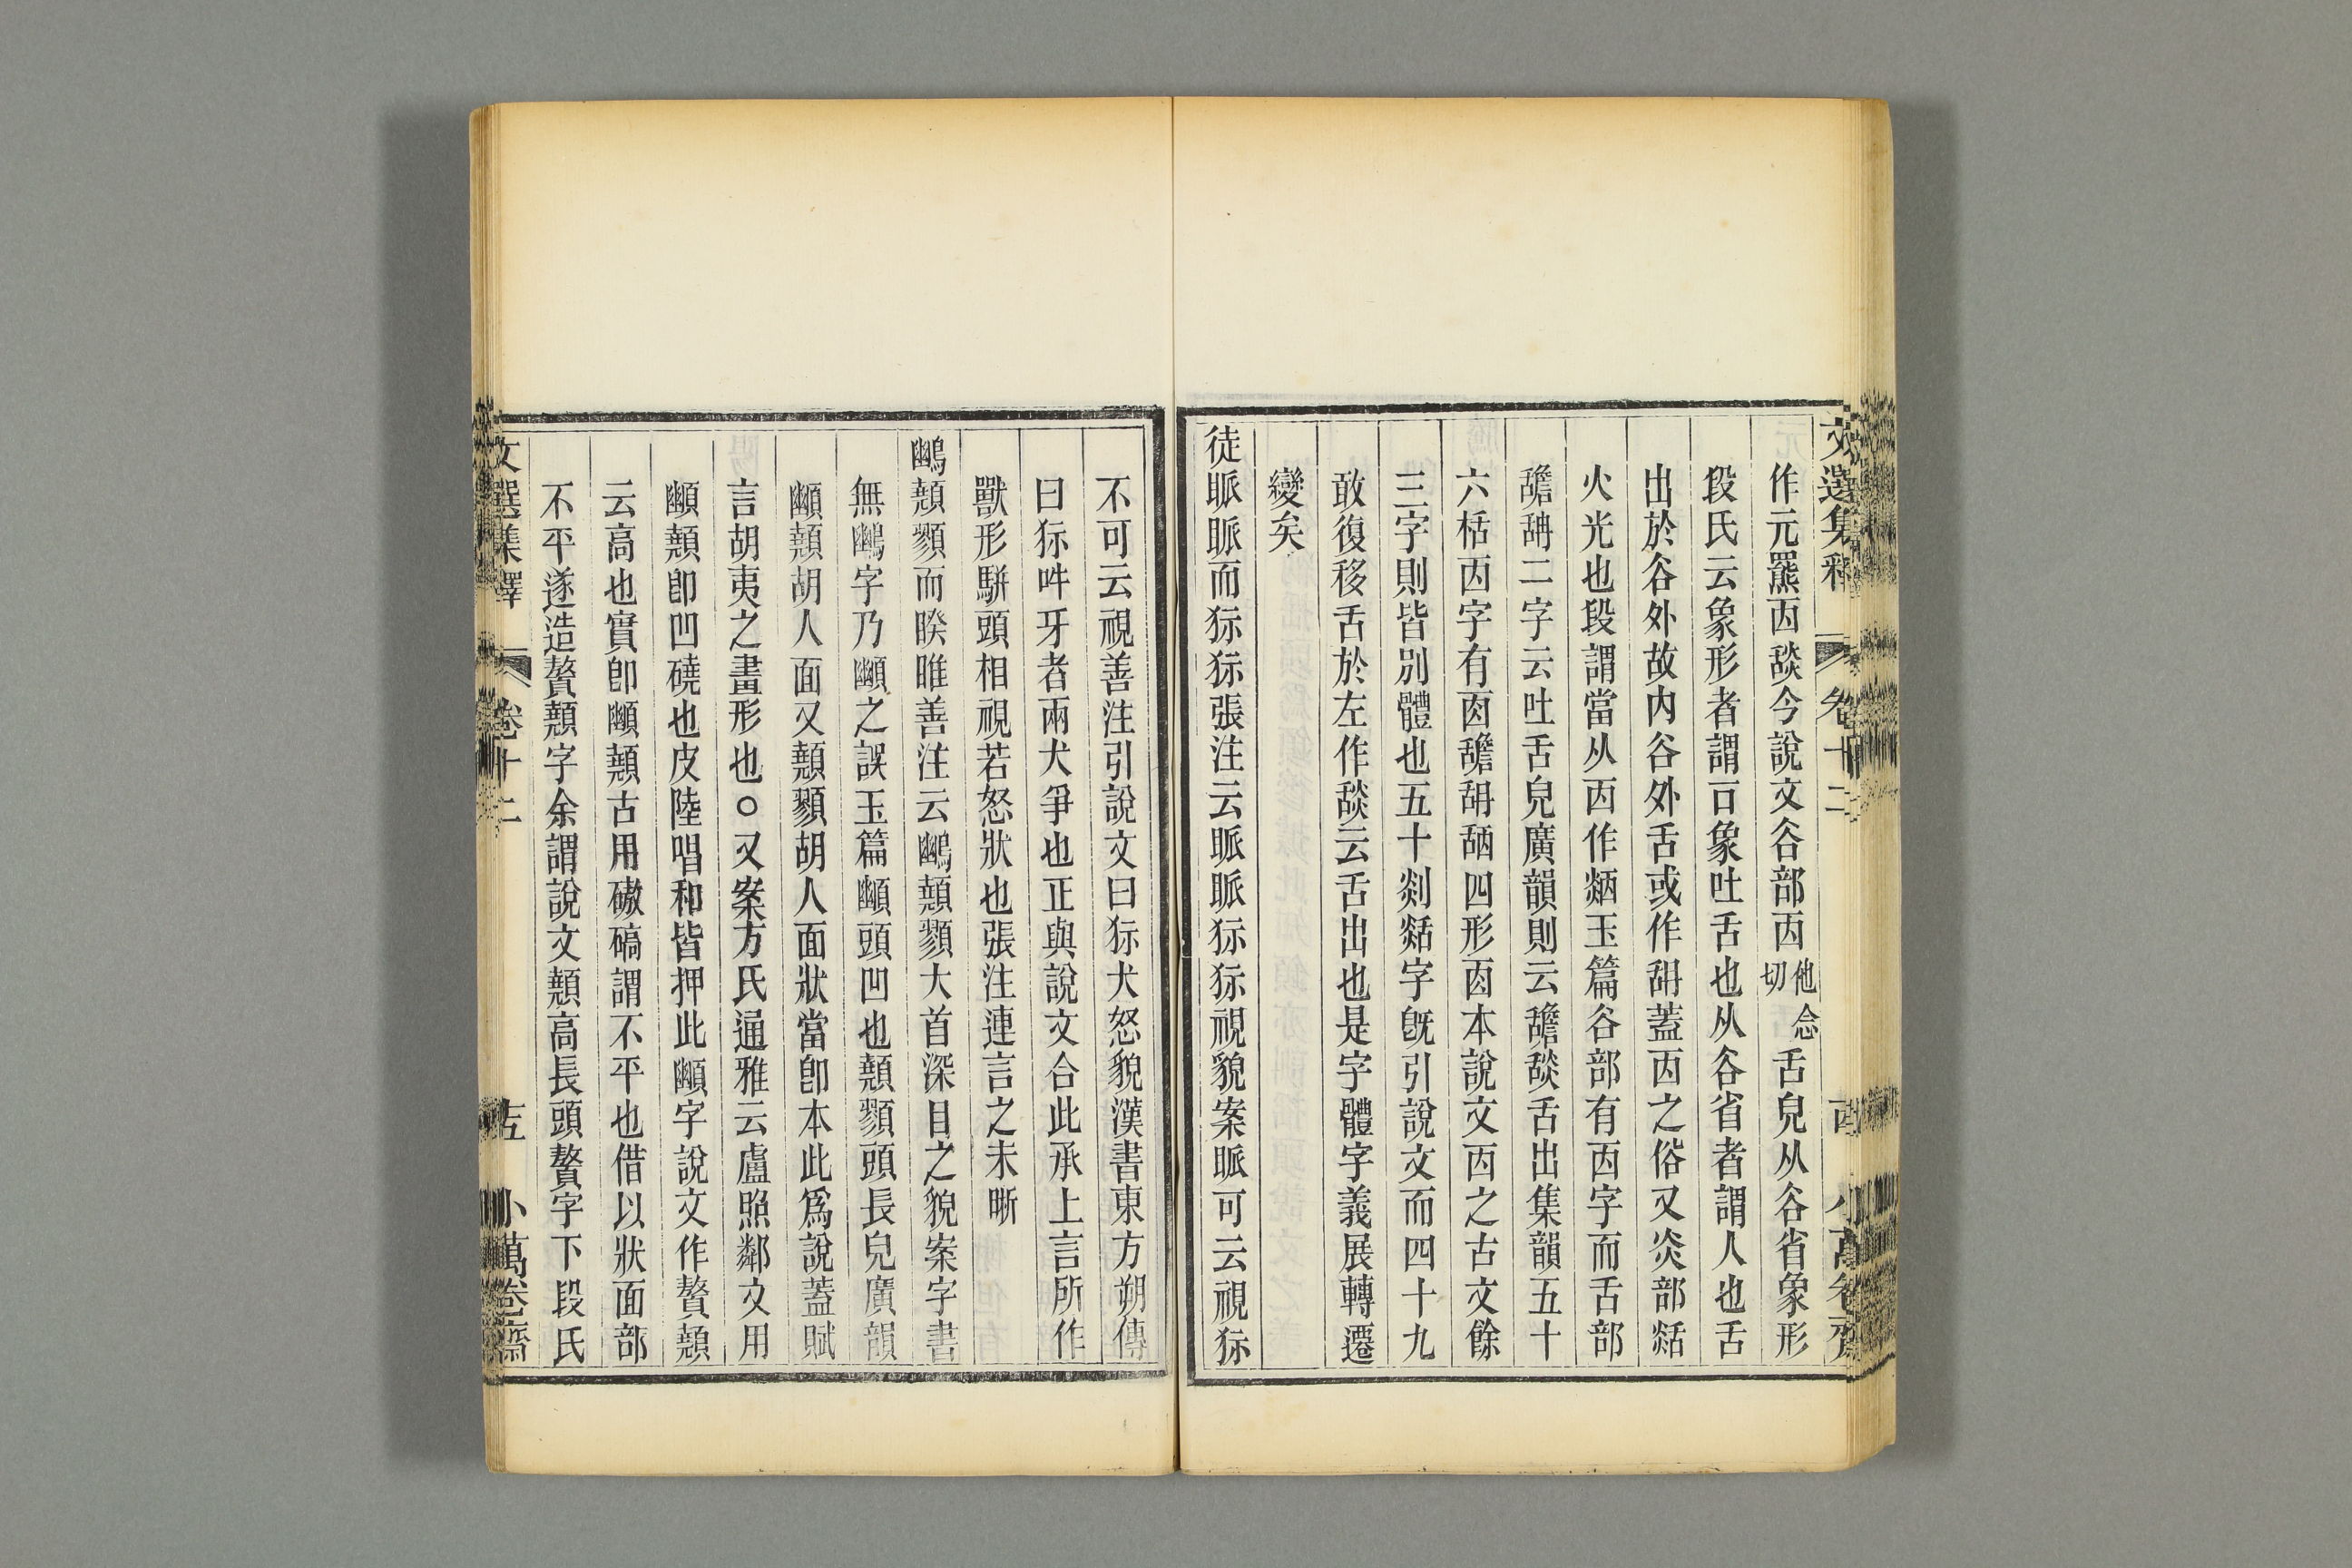 文選集釋 卷十二 齿 小萬卷齋
作元羆㐁舕今說文谷部㐁他念切舌皃从谷省象形
段氏云象形者謂𠮛象吐舌也从谷省者謂人也舌
出於谷外故内谷外舌或作𦧕蓋㐁之俗又炎部𤈛
火光也段謂當从㐁作𤇾玉篇谷部有㐁字而舌部
𦧴䑙二字云吐舌皃廣韻則云𦧴舕舌出集韻五十
六㮇㐁字有㐁𦧴䑙𦧕四形㐁本說文㐁之古文餘
三字則皆別體也五十剡𤈛字旣引說文而四十九
敢復移舌於左作舕云舌出也是字體字義展轉遷
變矣
徒眽眽而狋狋張注云眽眽狋狋視貌案眽可云視狋
不可云視善注引說文曰狋犬怒貌漢書東方朔傳
曰狋吽牙者兩犬爭也正與說文合此承上言所作
獸形駢頭相視若怒狀也張注連言之未晰
䫜顤而睽睢善注云顤大首深目之貌案字書
無字乃䫜之誤玉篇䫜頭凹也顤顟頭長皃廣韻
䫜顤胡人面又顤顟胡人面狀當卽本此爲說蓋賦
言胡夷之畫形也○又案方氏通雅云盧照鄰文用
䫜顤卽凹磽也皮陸唱和皆押此䫜字說文作贅顤
云高也實卽䫜顤古用磝碻謂不平也借以狀面部
不平遂造贅顤字余謂說文顤高長頭贅字下段氏
文選集釋 卷十二 去 小萬卷齋